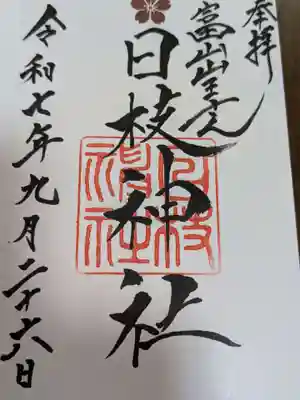 奉拝
富山山王さん
日枝神社
日枝神社
令和七年九月二十六日